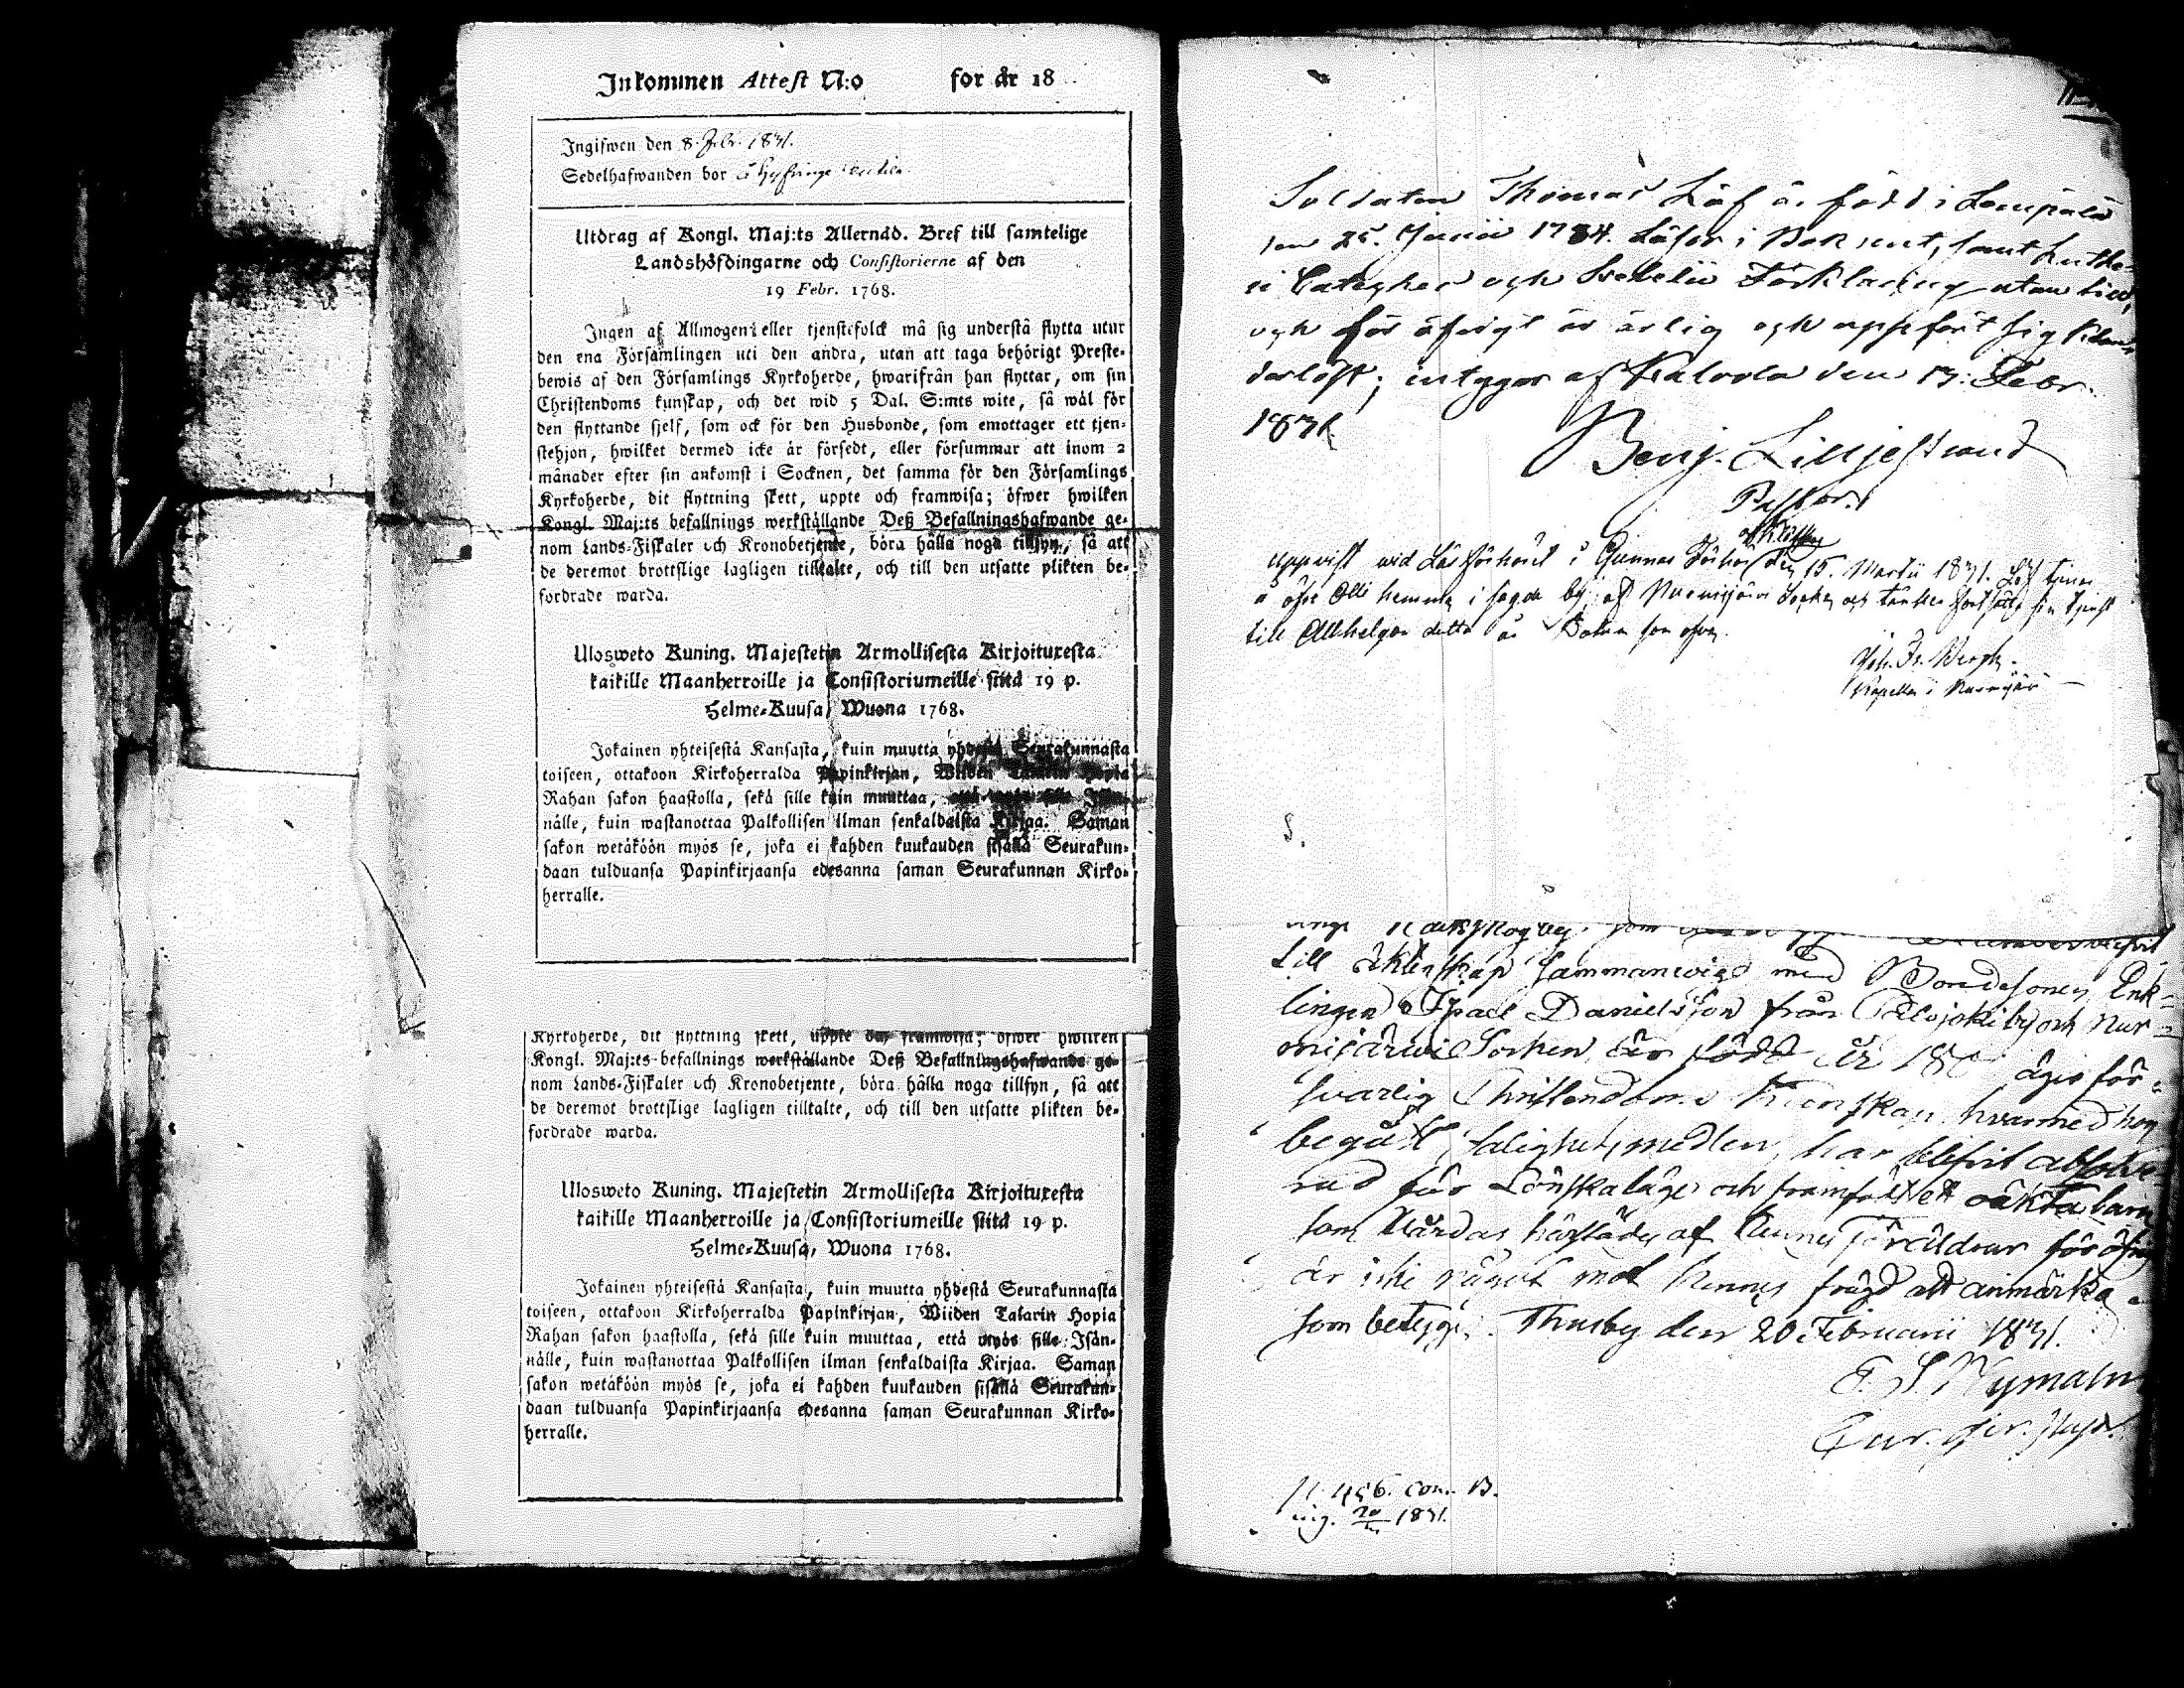 Inkommen Attest N:o for år 18
Ingifwen den 8. Febr. 1831.
Sedelhafwanden bor i Hyfvinge
Utdrag af Kongl. Maj:ts Allernåd. Bref till samtelige
Landshöfdingarne och Consistorierne af den
19 Febr. 1768.
Ingen af Allmogen eller tjenstefolck må sig understå flytta utur
den ena Församlingen uti den andra, utan att taga behörigt Preste-
bewis af den Församlings Kyrkoherde, hwarifrån han flyttar, om sin
Christendoms kunskap, och det wid 5 Dal. S:mts wite, så wål för
den flyttande sjelf, som ock för den Husbonde, som emottager ett tjen-
stehjon, hwilket dermed icke är försedt, eller försummar att inom 2
månader efter sin ankomst i Socknen, det samma för den Församlings
Kyrkoherde, dit flyttning skett, uppte och framwisa; öfwer hwilken
Kongl. Maj:ts befallnings werkställande Deß Befallningshafwande ge-
nom Lands-Fiskaler och Kronobetjente, böra hålla noga tillsyn, så att
de deremot brottslige lagligen tilltalte, och till den utsatte plikten be-
fordrade warda.
Ulosweto Kuning. Majestetin Armollisesta Kirjoituxesta
kaikille Maanherroille ja Consistoriumeille siitä 19 p.
Helme-Kuusa, Wuona 1768.
Jokainen yhteisestä Kansasta, kuin muutta yhdestä Seurakunnasta
toiseen, ottakoon Kirkoherralda Papinkirjan, Wiiden Talarin Hopia
Rahan sakon haastolla, sekå sille kuin muuttaa,
nålle, kuin wastanottaa Palkollisen ilman senkaldaista Kirjaa. Saman
sakon wetåköön myös se, joka ei kahden kuukauden sisällä Seurakun-
daan tulduansa Papinkirjaansa edesanna saman Seurakunnan Kirko-
herralle.
Kyrkoherde, dit flyttning skett, uppte och framwisa; öfwer hwilken
Kongl. Maj:ts befallnings werkställande Deß Befallningshafwande ge-
nom Lands-Fiskaler och Kronobetjente, böra hålla noga tillsyn, så att
de deremot brottslige lagligen tilltalte, och till den utsatte plikten be-
fordrade warda.
Ulosweto Kuning. Majestetin Armollisesta Kirjoituxesta
kaikille Maanherroille ja Consistoriumeille siitä 19 p.
Helme-Kuusa, Wuona 1768.
Jokainen yhteisestä Kansasta, kuin muutta yhdestä Seurakunnasta
toiseen, ottakoon Kirkoherralda Papinkirjan, Wiiden Talarin Hopia
Rahan sakon haastolla, sekå sille kuin muuttaa, että myös sille Isån-
nålle, kuin wastanottaa Palkollisen ilman senkaldaista Kirjaa. Saman
sakon wetåköön myös se, joka ei kahden kuukauden sisällä Seurakun-
daan tulduansa Papinkirjaansa edesanna saman Seurakunnan Kirko-
herralle.
Soldaten Thomas Löf är född i Lempälä
den 25. Junii 1784. Läser i Bok rent, samt Luthe-
ri Cateches och Svebelii Förklaring utan till,
och för öfrigt är ärlig och uppfört sig klan-
derlöst; intygar af Kalvola den 13. Febr.
1831
Benj. Lilljestrand
Pastor
uppvist vid Läsförhöret i Gunnar den 15. Martii 1831. Löf tjenar
å öfre Olli hemman i sagde by af Nurmijärvi Socken och tänker fortsätta sin tjenst
till Allhelgon detta år
Joh. Fr. Bergh.
Kapellan i Nurmijärvi
till äktenskap sammanvigd med Bondesonen Enk-
lingen Isaac Danielsson från Palojoki by och Nur-
mijärwi Socken, är född år 18 äger för-
svarlig Christendoms Kunskap, hvarmed hon
begått Salighetsmedlen, har blifvit absolve-
rad för Lönskaläge och framfödt ett oäkta barn
som vårdas hos af hennes Föräldrar för öfrigt
är icke något mot hennes frägd att anmärka
som betygar. Thusby den 20 Februarii 1831.
E. S. Nymalm
Cur. Gir. Past.
N. 456. Com. B.
uig. 20 1831.